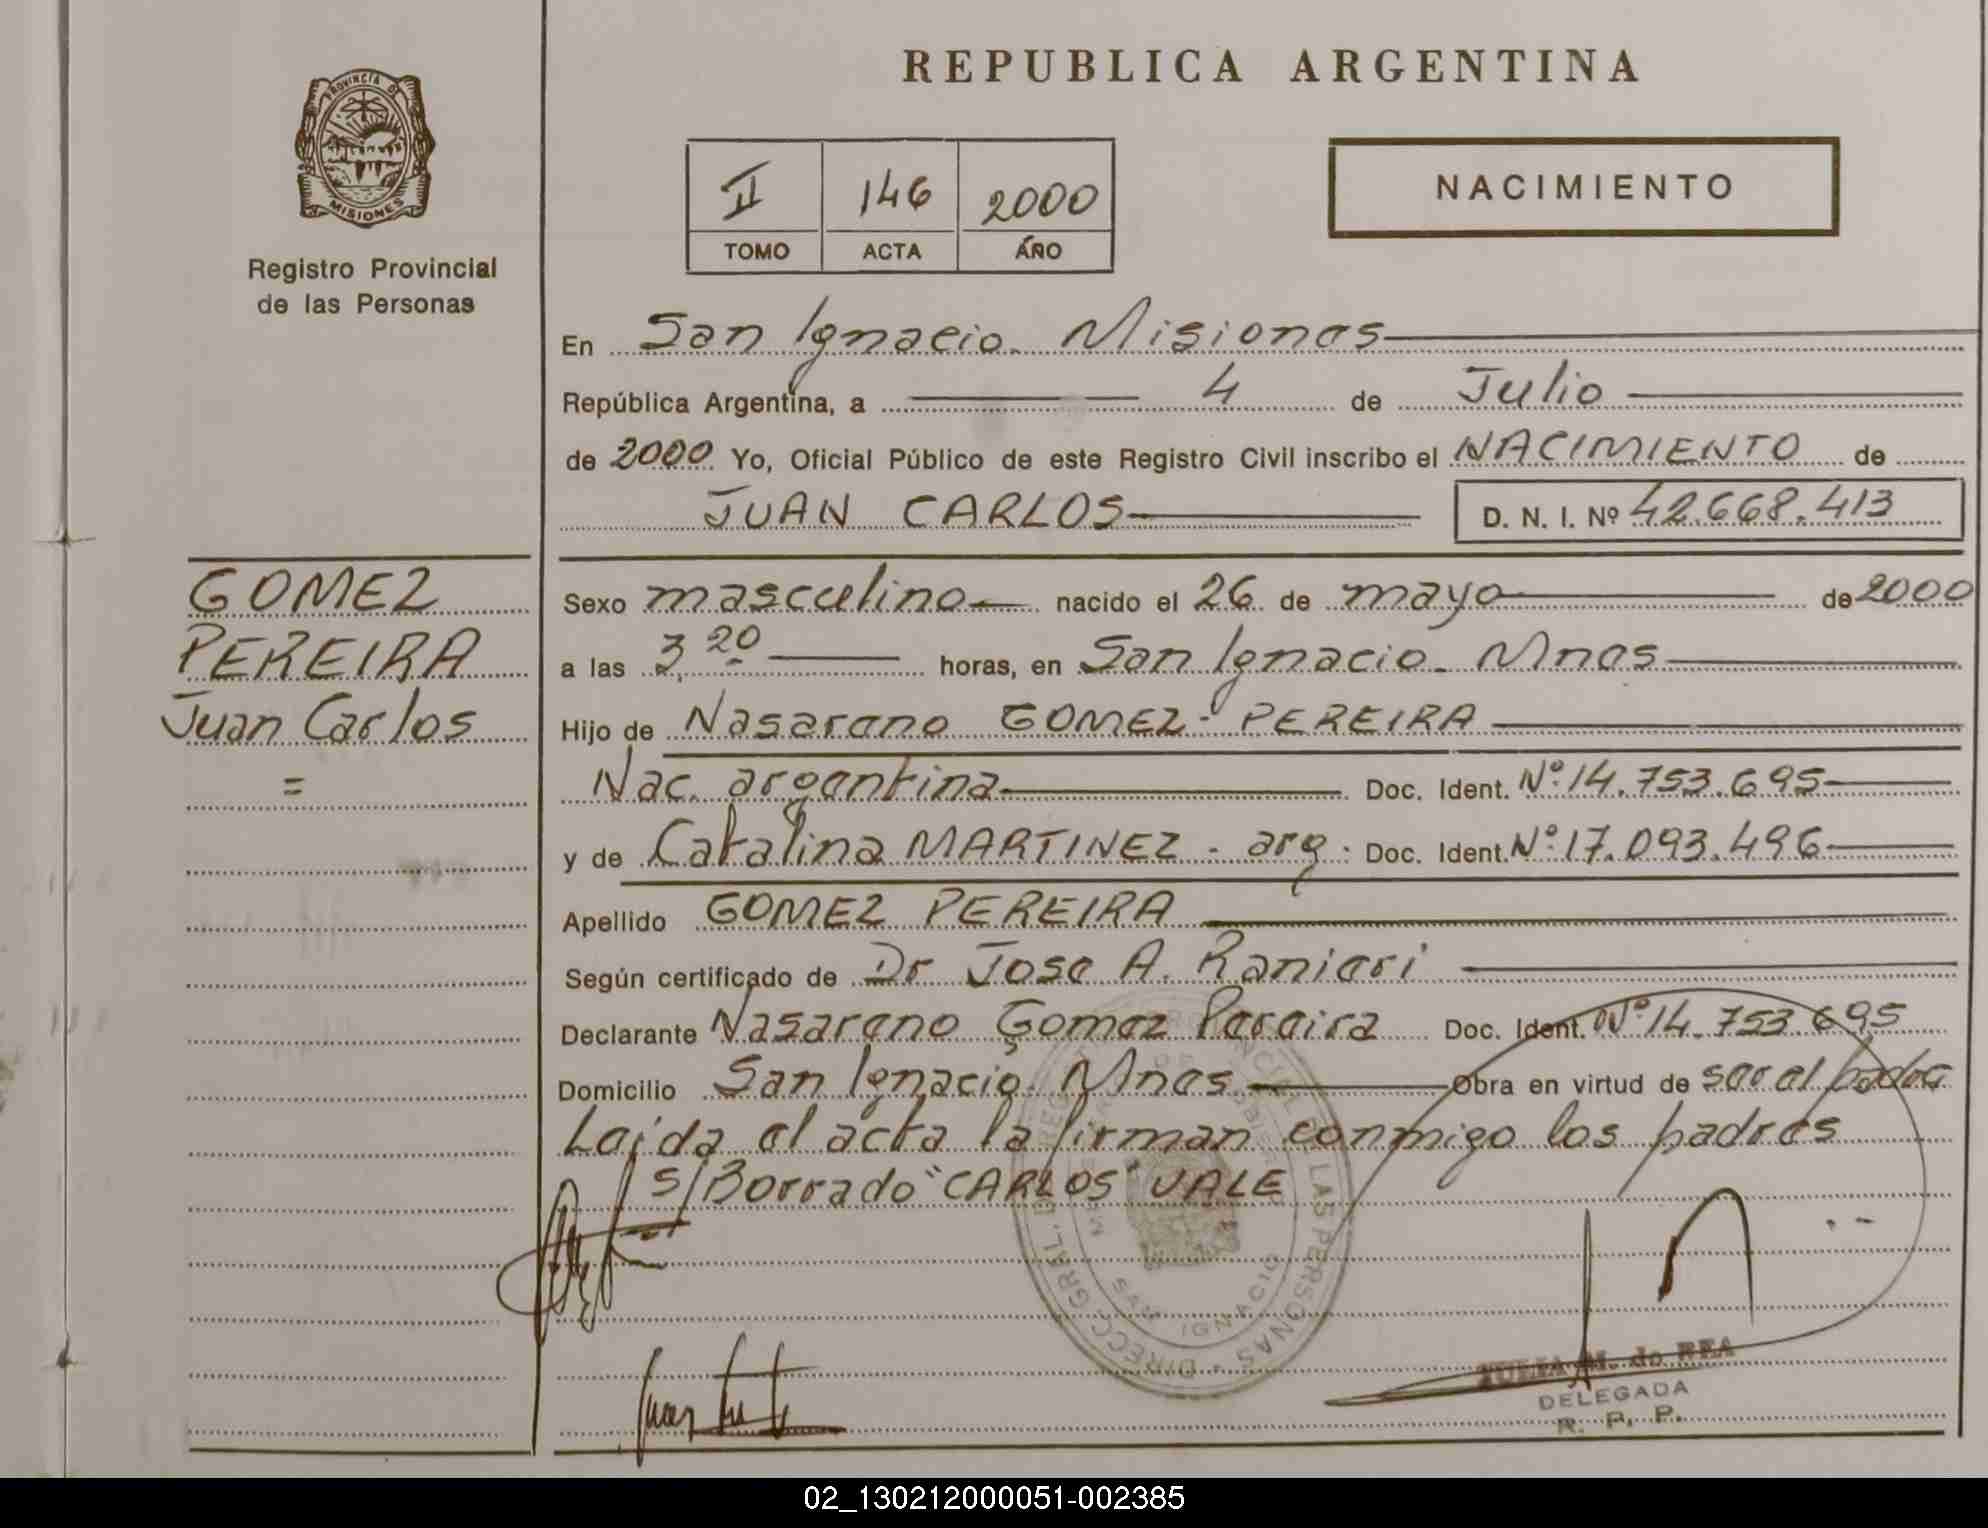 REPUBLICA ARGENTINA
PROVINCIA DE MISIONES
Registro Provincial
de las Personas
II 146 2000
TOMO ACTA AÑO
NACIMIENTO
En San Ignacio. Misiones
República Argentina, a 4 de Julio
de 2000 Yo, Oficial Público de este Registro Civil inscribo el NACIMIENTO de
JUAN CARLOS D. N. I. Nº 42.668.413
GOMEZ
PEREIRA
Juan Carlos
=
Sexo masculino nacido el 26 de mayo de 2000
a las 3,20 horas, en San Ignacio. Mnes
Hijo de Nasareno GOMEZ - PEREIRA
Nac. argentina Doc. Ident. Nº 14.753.695
y de Catalina MARTINEZ - arg. Doc. Ident. Nº 17.093.496
Apellido GOMEZ PEREIRA
Según certificado de Dr Jose A. Ranieri
Declarante Nasareno Gomez Pereira Doc. Ident. Nº 14.753.695
Domicilio San Ignacio. Mnes Obra en virtud de ser el padre
Leida el acta la firman conmigo los padres
S/Borrado "CARLOS" VALE
DIRECC. GRAL. DEL REGISTRO PROVINCIAL DE LAS PERSONAS
SAN IGNACIO
JULIA M. de REA
DELEGADA
R. P. P.
02_130212000051-002385